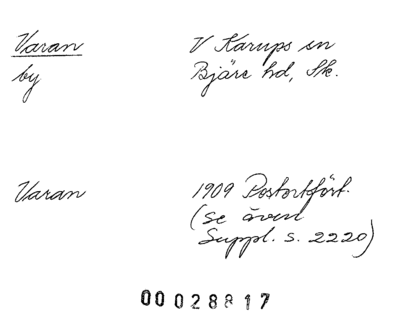 Varan V Karups sn
by Bjäre hd, Sk.
Varan 1909 Postortfört.
(se även
Suppl. s. 2220)
00028817